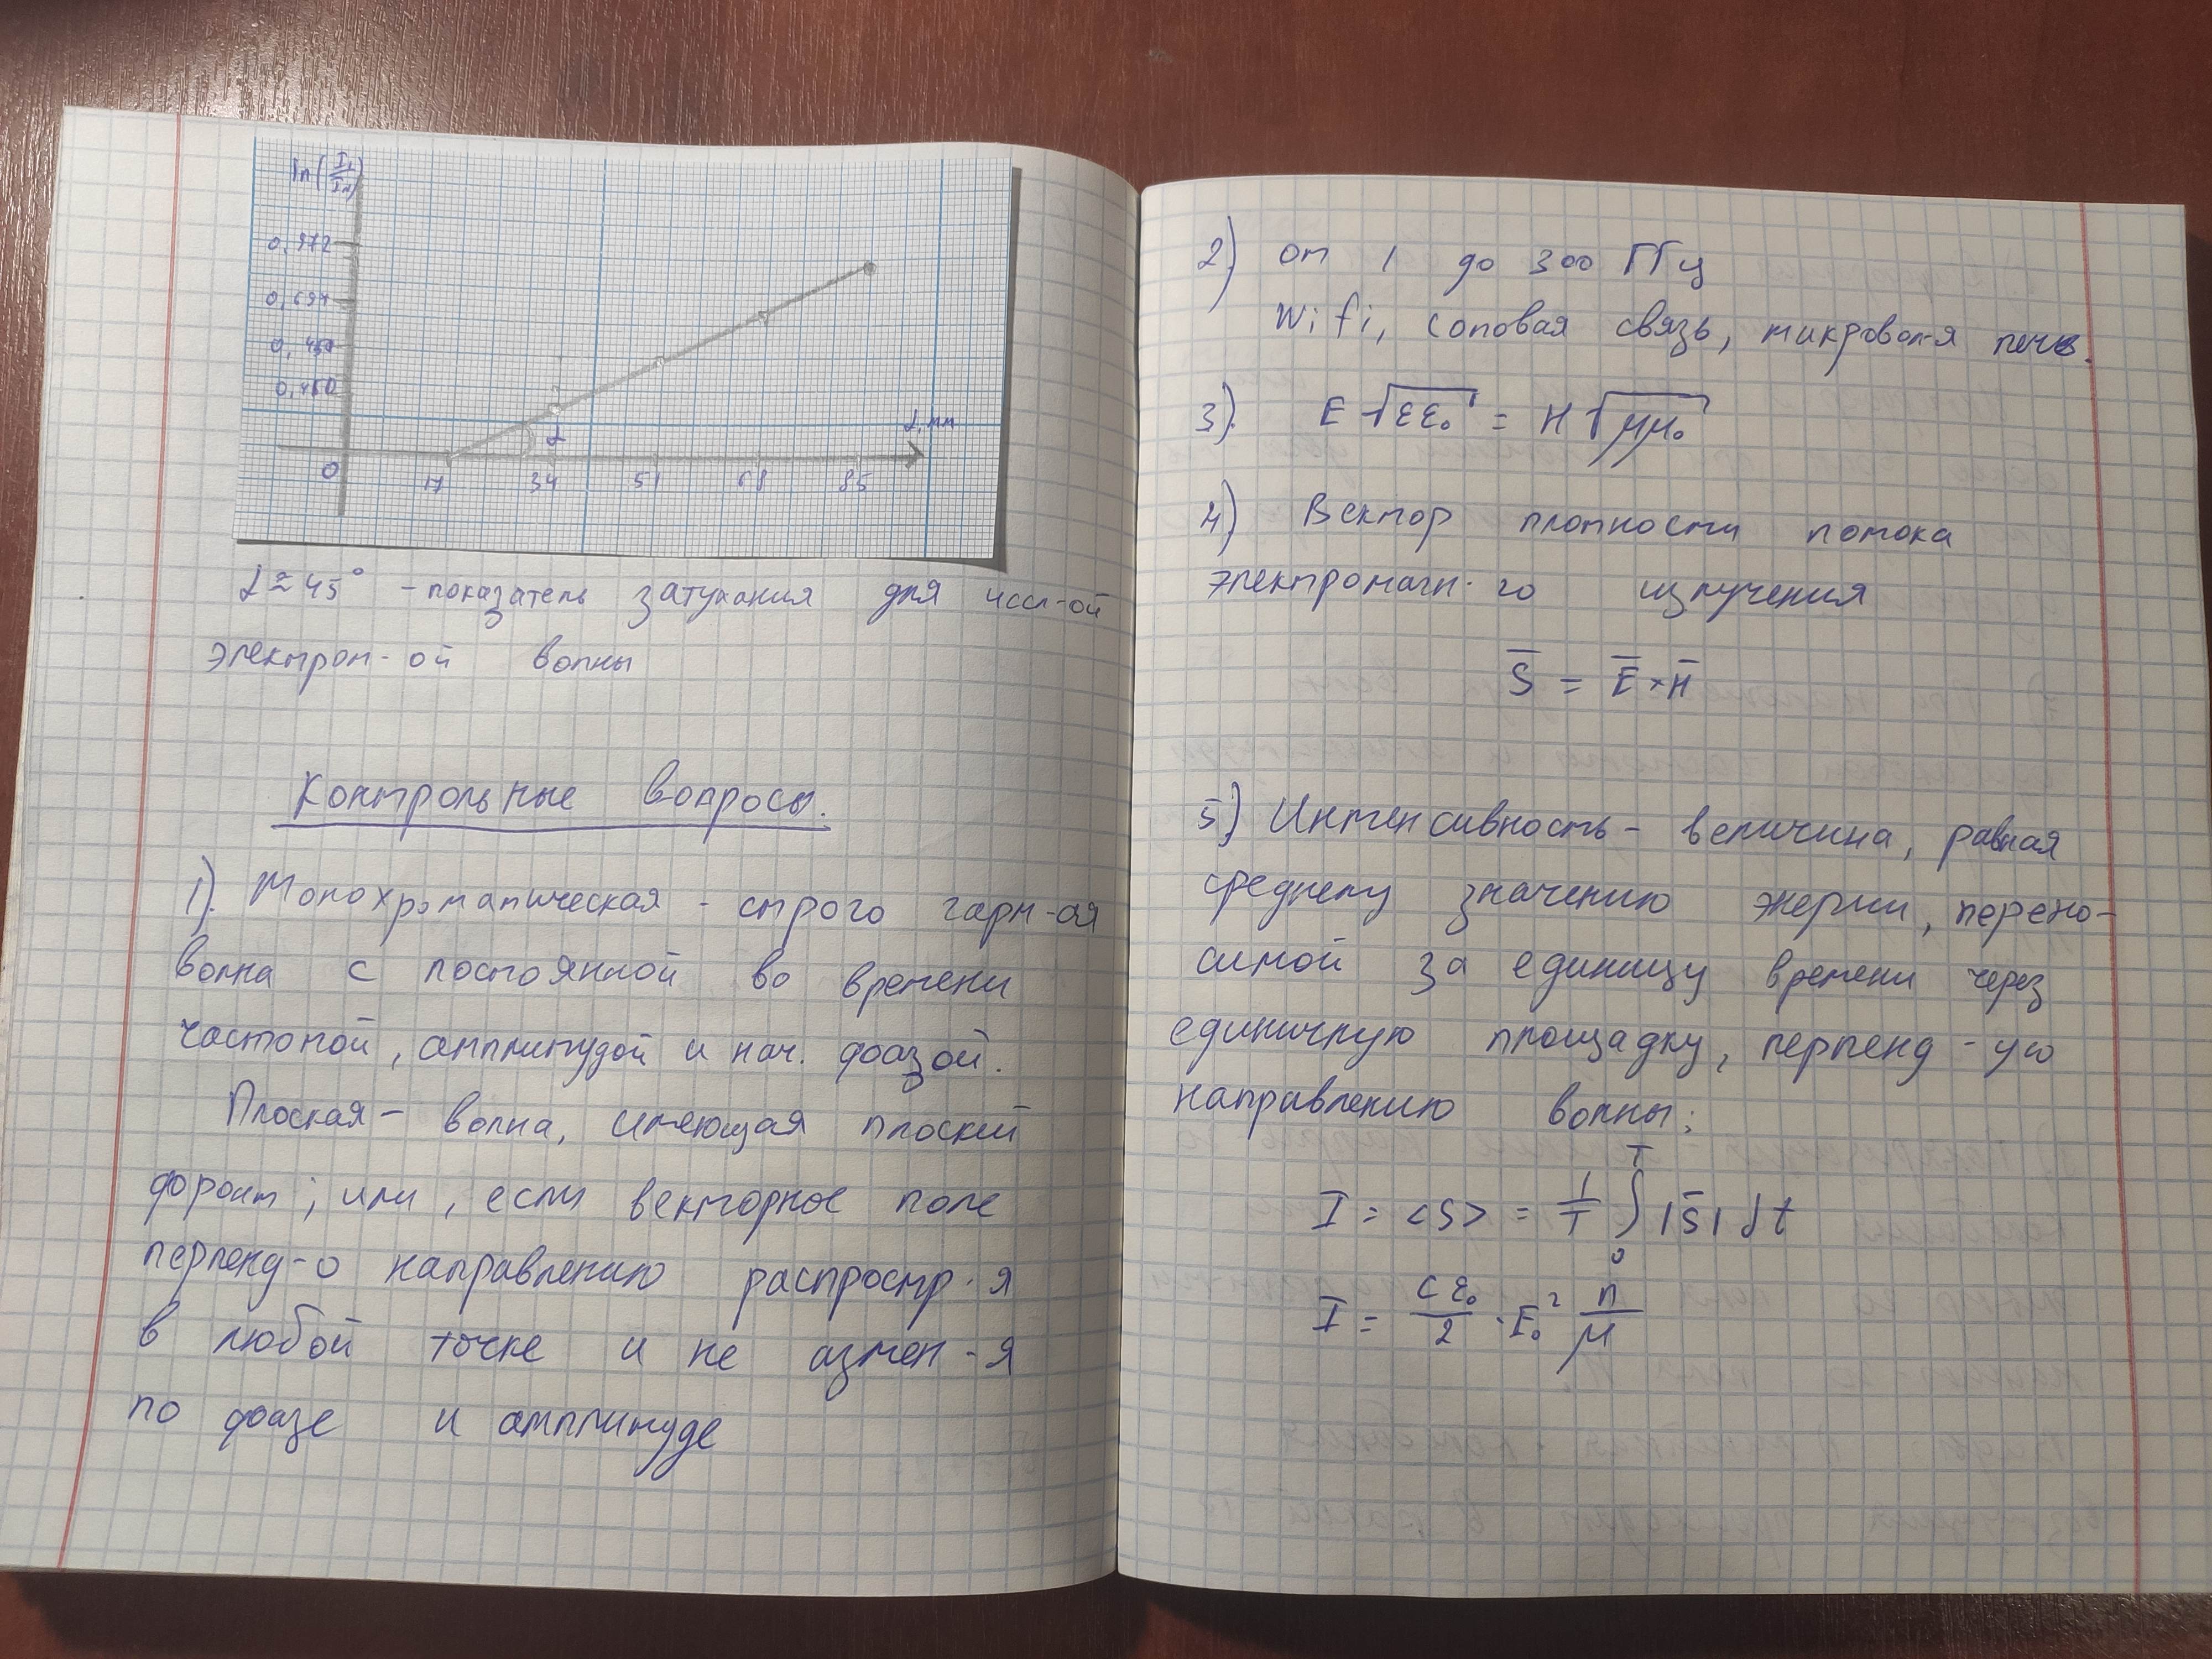 ln(I₁/Iₙ)
0,972
0,697
0,450
0
17 34 51 68 85
α
L, мм
α ≈ 45° - показатель затухания для иссл-ой
электром-ой волны
Контрольные вопросы.
1). Монохроматическая - строго гарм-ая
волна с постоянной во времени
частотой, амплитудой и нач. фазой.
Плоская - волна, имеющая плоский
фронт; или, если векторное поле
перпенд-о направлению распростр-я
в любой точке и не измен-я
по фазе и амплитуде
2) от 1 до 300 ГГц
Wifi, сотовая связь, микровол-я печь.
3). E √(εε₀) = H √(μμ₀)
4) Вектор плотности потока
электромагн-го излучения
S̅ = E̅ × H̅
5) Интенсивность - величина, равная
среднему значению энергии, перено-
симой за единицу времени через
единичную площадку, перпенд-ую
направлению волны:
I = <S> = 1/T ∫₀ᵀ |S̅| dt
I = cε₀/2 · E₀² n/μ